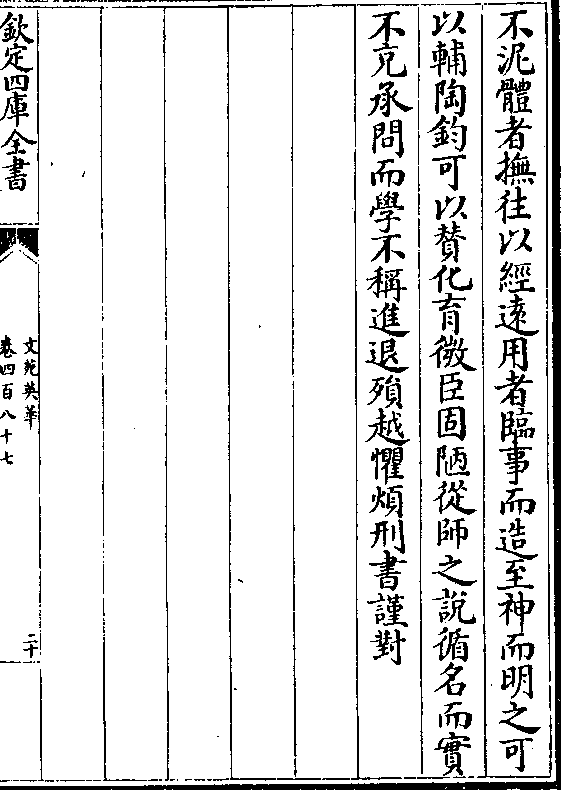 不泥體者撫往以經遠用者臨事而造至神而明之可
以輔陶鈞可以賛化育微臣固陋從師之說循名而實
不克承問而學不稱進退殞越懼煩刑書謹對
欽定四庫全書
文苑英華
卷四百八十七
二十